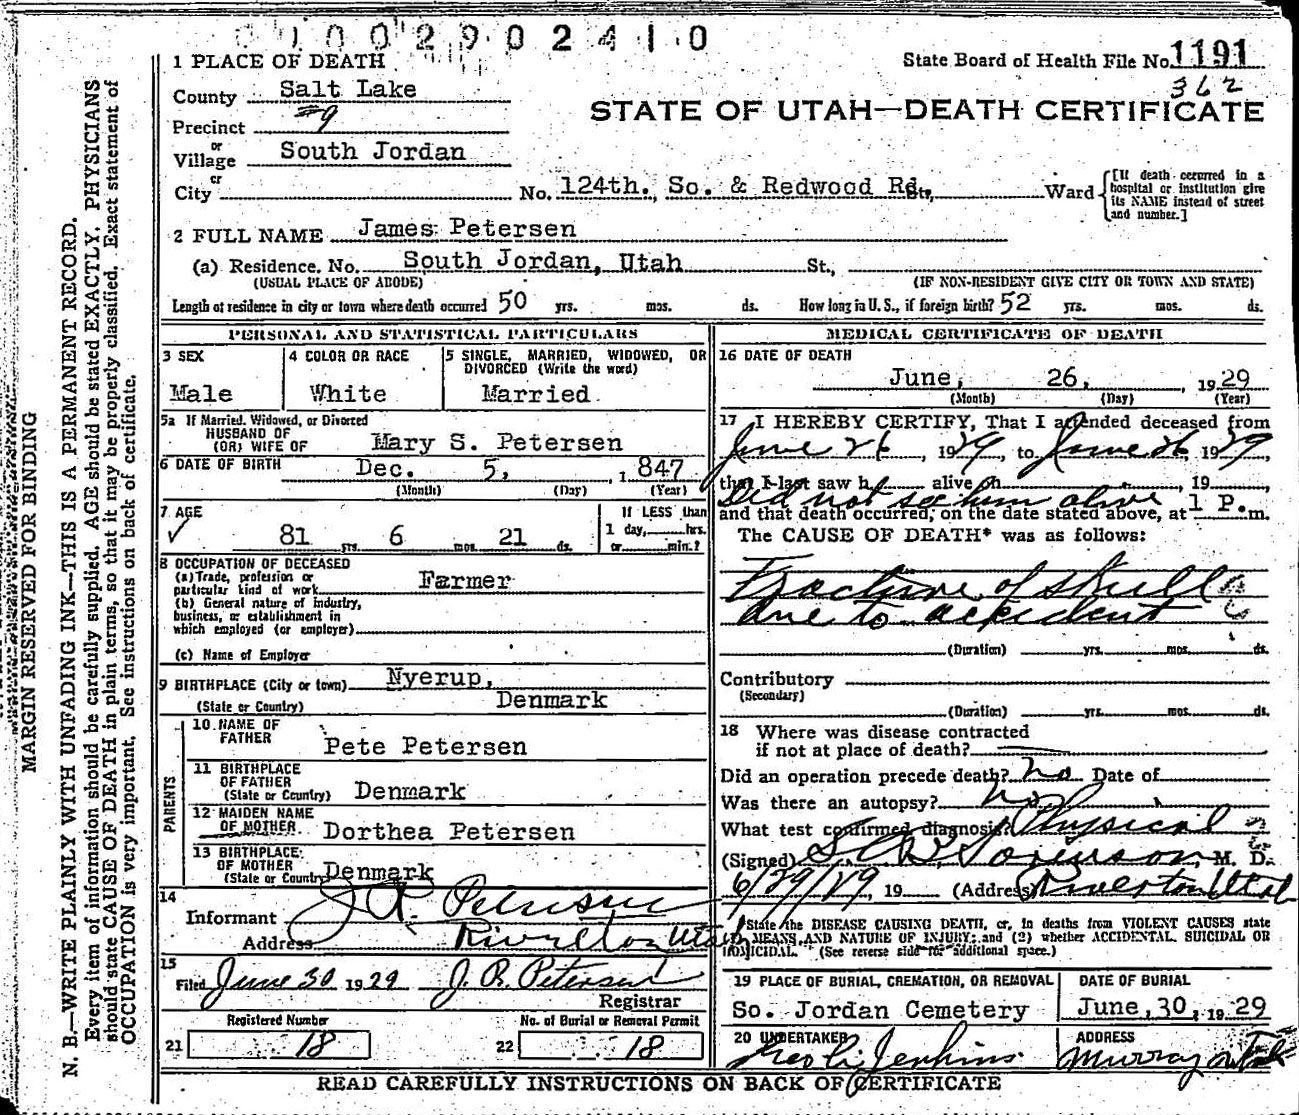 01002902410
1 PLACE OF DEATH
State Board of Health File No. 1191
County Salt Lake
362
STATE OF UTAH—DEATH CERTIFICATE
Precinct #9
or
Village South Jordan
or
City No. 124th. So. & Redwood Rd. St., Ward
[If death occurred in a
hospital or institution give
its NAME instead of street
and number.]
2 FULL NAME James Petersen
(a) Residence. No. South Jordan, Utah St.,
(USUAL PLACE OF ABODE) (IF NON-RESIDENT GIVE CITY OR TOWN AND STATE)
Length of residence in city or town where death occurred 50 yrs. mos. ds. How long in U. S., if foreign birth? 52 yrs. mos. ds.
PERSONAL AND STATISTICAL PARTICULARS
3 SEX
Male
4 COLOR OR RACE
White
5 SINGLE, MARRIED, WIDOWED, OR
DIVORCED (Write the word)
Married
5a If Married, Widowed, or Divorced
HUSBAND OF
(OR) WIFE OF Mary S. Petersen
6 DATE OF BIRTH Dec. 5, , 1847
(Month) (Day) (Year)
7 AGE
✓ 81 yrs. 6 mos. 21 ds.
If LESS than
1 day, hrs.
or min.?
8 OCCUPATION OF DECEASED
(a) Trade, profession or
particular kind of work Farmer
(b) General nature of industry,
business, or establishment in
which employed (or employer)
(c) Name of Employer
9 BIRTHPLACE (City or town) Nyerup,
(State or Country) Denmark
PARENTS
10 NAME OF
FATHER Pete Petersen
11 BIRTHPLACE
OF FATHER
(State or Country) Denmark
12 MAIDEN NAME
OF MOTHER Dorthea Petersen
13 BIRTHPLACE
OF MOTHER
(State or Country) Denmark
14
Informant J R Petersen
Address Riverton Utah
15
Filed June 30 1929 J. R. Petersen
Registrar
Registered Number
21 18
No. of Burial or Removal Permit
22 18
MEDICAL CERTIFICATE OF DEATH
16 DATE OF DEATH
June, 26, , 1929
(Month) (Day) (Year)
17 I HEREBY CERTIFY, That I attended deceased from
June 26, 1929, to June 26, 1929,
that I last saw h alive on , 19 ,
Did not see him alive
and that death occurred, on the date stated above, at 1 P. m.
The CAUSE OF DEATH* was as follows:
Fracture of skull
due to accident
(Duration) yrs. mos. ds.
Contributory
(Secondary)
(Duration) yrs. mos. ds.
18 Where was disease contracted
if not at place of death?
Did an operation precede death? no Date of
Was there an autopsy? no
What test confirmed diagnosis? Physical
(Signed) Sorenson M. D.
6/29/29, 19 (Address) Riverton Utah
*State the DISEASE CAUSING DEATH, or, in deaths from VIOLENT CAUSES state
(1) MEANS AND NATURE OF INJURY; and (2) whether ACCIDENTAL, SUICIDAL OR
HOMICIDAL. (See reverse side for additional space.)
19 PLACE OF BURIAL, CREMATION, OR REMOVAL
So. Jordan Cemetery
DATE OF BURIAL
June, 30, 1929
20 UNDERTAKER
Jenkins
ADDRESS
Murray Utah
READ CAREFULLY INSTRUCTIONS ON BACK OF CERTIFICATE
MARGIN RESERVED FOR BINDING
N. B.—WRITE PLAINLY WITH UNFADING INK—THIS IS A PERMANENT RECORD.
Every item of information should be carefully supplied. AGE should be stated EXACTLY. PHYSICIANS
should state CAUSE OF DEATH in plain terms, so that it may be properly classified. Exact statement of
OCCUPATION is very important. See instructions on back of certificate.